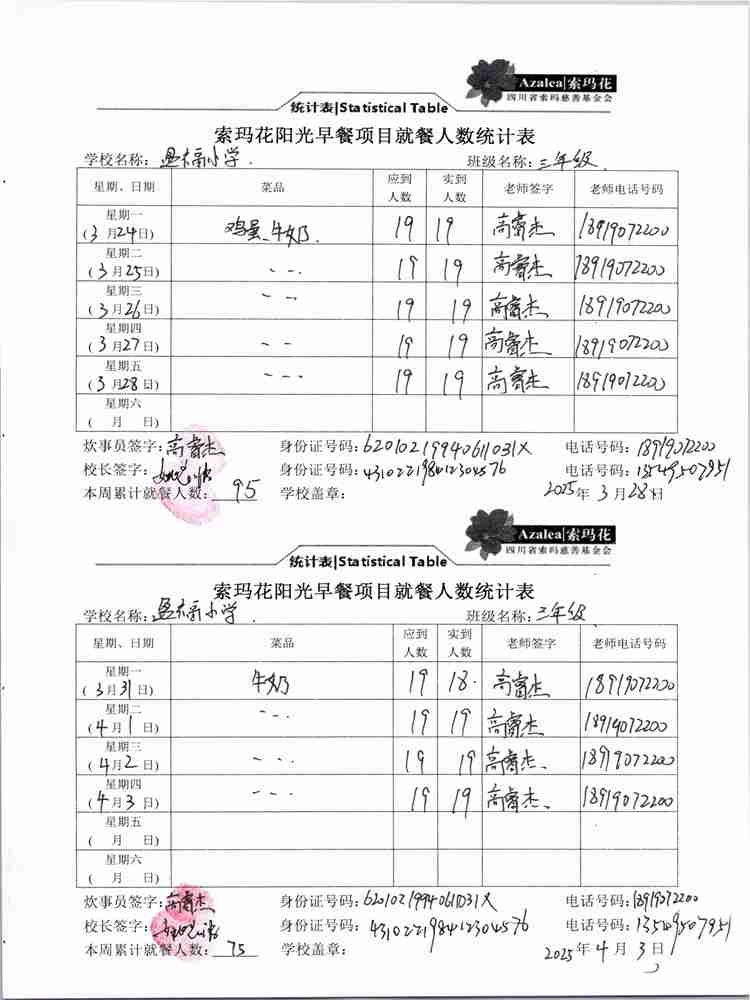 Azalea|索玛花
四川省索玛慈善基金会
统计表|Statistical Table
索玛花阳光早餐项目就餐人数统计表
学校名称: 小学. 班级名称: 三年级
星期、日期 菜品 应到人数 实到人数 老师签字 老师电话号码
星期一 (3月24日) 鸡蛋、牛奶. 19 19 高睿杰 18919072200
星期二 (3月25日) 、-. 19 19 高睿杰 18919072200
星期三 (3月26日) 、-. 19 19 高睿杰 18919072200
星期四 (3月27日) - - 19 19 高睿杰 18919072200
星期五 (3月28日) - -. 19 19 高睿杰 18919072200
星期六 ( 月 日)
炊事员签字: 高睿杰 身份证号码: 62010219940611031X 电话号码: 18919072200
校长签字: 身份证号码: 431022198412304576 电话号码: 13549507951
本周累计就餐人数: 95 学校盖章: 2025年3月28日
Azalea|索玛花
四川省索玛慈善基金会
统计表|Statistical Table
索玛花阳光早餐项目就餐人数统计表
学校名称: 小学. 班级名称: 三年级
星期、日期 菜品 应到人数 实到人数 老师签字 老师电话号码
星期一 (3月31日) 牛奶 19 18. 高睿杰 18919072200
星期二 (4月1日) - -. 19 19 高睿杰 18919072200
星期三 (4月2日) - -. 19 19 高睿杰、 18919072200
星期四 (4月3日) - -. 19 19 高睿杰、 18919072200
星期五 ( 月 日)
星期六 ( 月 日)
炊事员签字: 高睿杰 身份证号码: 62010219940611031X 电话号码: 18919072200
校长签字: 身份证号码: 431022198412304576 电话号码: 13549507951
本周累计就餐人数: 75 学校盖章: 2025年4月3日